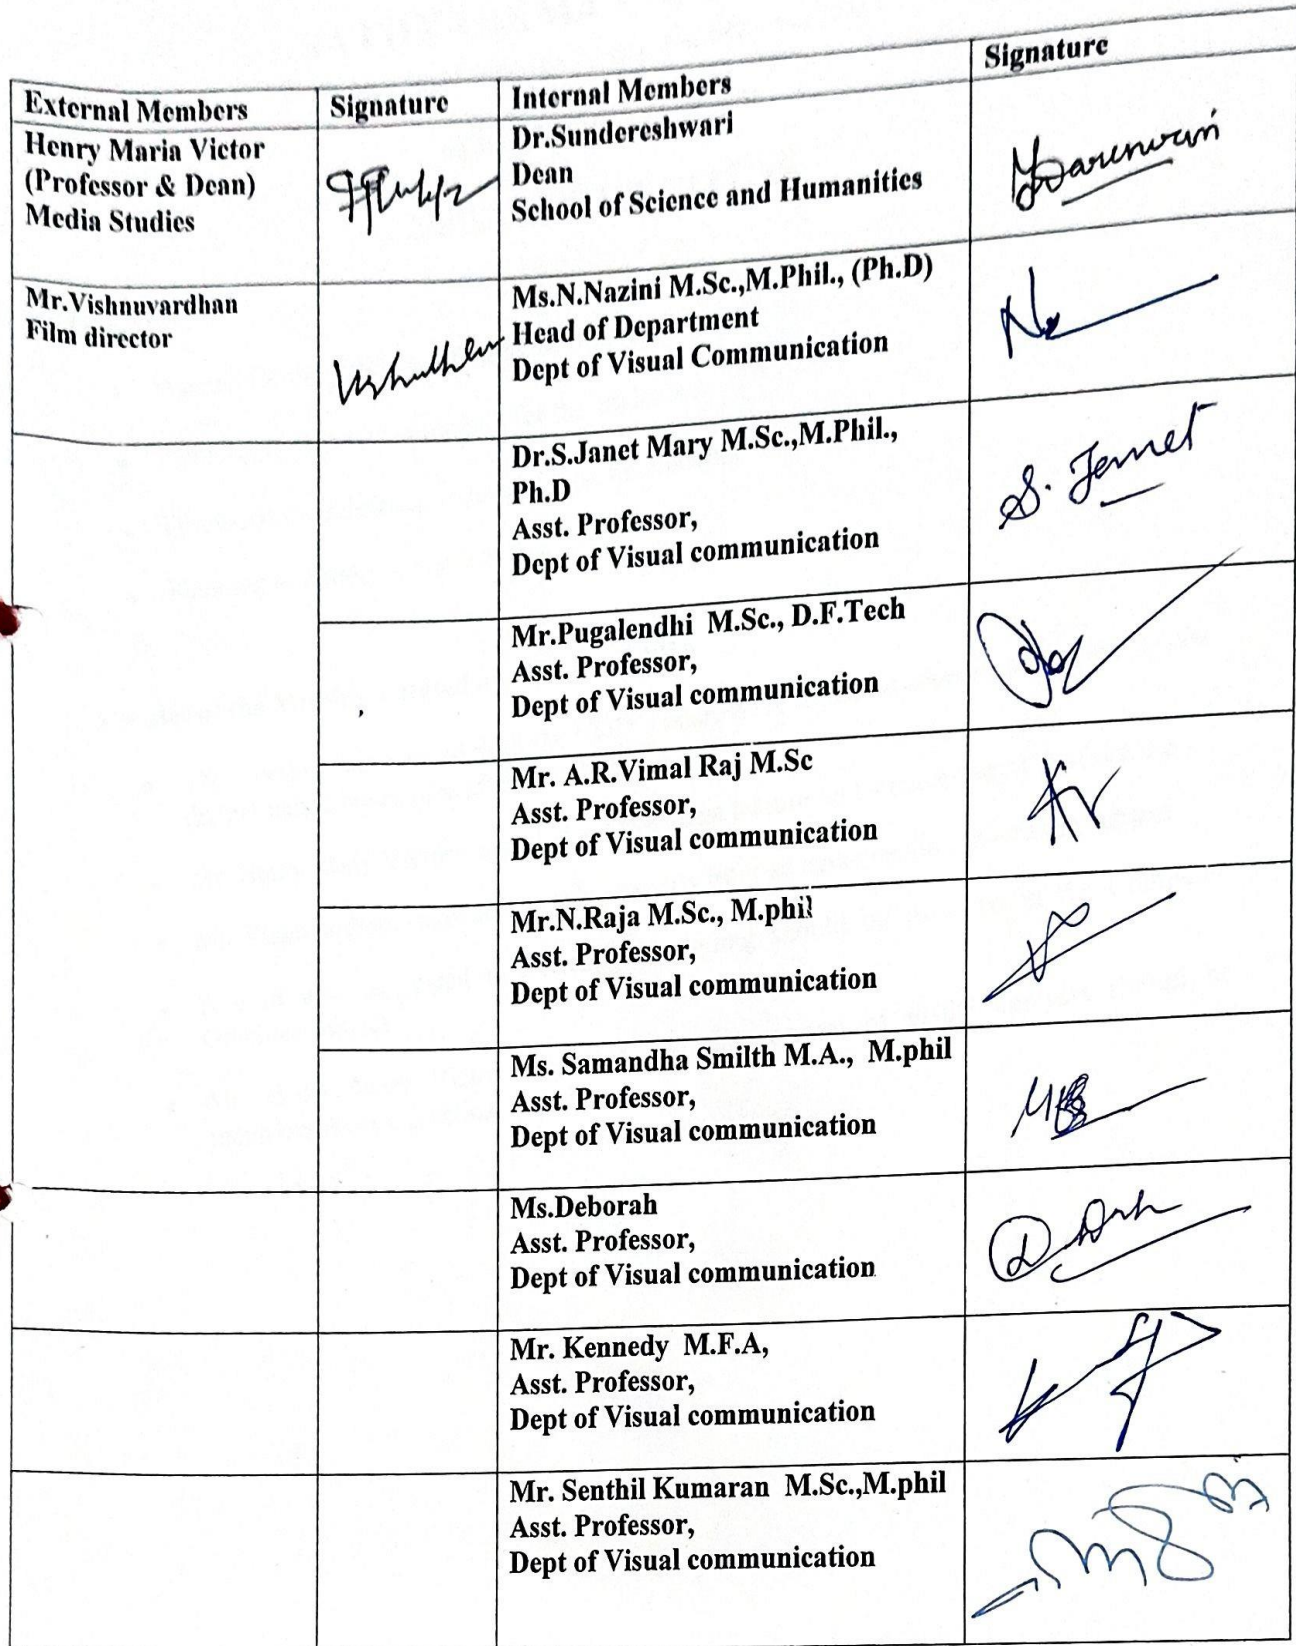 External Members
Signature
Internal Members
Signature
Henry Maria Victor
(Professor & Dean)
Media Studies
Dr.Sundereshwari
Dean
School of Science and Humanities
Mr.Vishnuvardhan
Film director
Ms.N.Nazini M.Sc.,M.Phil., (Ph.D)
Head of Department
Dept of Visual Communication
Dr.S.Janet Mary M.Sc.,M.Phil.,
Ph.D
Asst. Professor,
Dept of Visual communication
S. Jennet
Mr.Pugalendhi M.Sc., D.F.Tech
Asst. Professor,
Dept of Visual communication
Mr. A.R.Vimal Raj M.Sc
Asst. Professor,
Dept of Visual communication
Mr.N.Raja M.Sc., M.phil
Asst. Professor,
Dept of Visual communication
Ms. Samandha Smilth M.A., M.phil
Asst. Professor,
Dept of Visual communication
Ms.Deborah
Asst. Professor,
Dept of Visual communication
Mr. Kennedy M.F.A,
Asst. Professor,
Dept of Visual communication
Mr. Senthil Kumaran M.Sc.,M.phil
Asst. Professor,
Dept of Visual communication